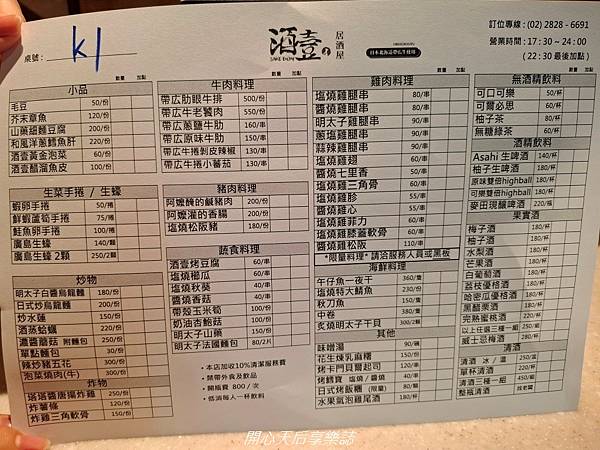 桌號：K1
酒壹
居酒屋
日本北海道帶広牛使用
訂位專線：(02) 2828 - 6691
營業時間：17：30 ~ 24：00
( 22：30 最後加點 )
小品 數量 加點
毛豆 50/份
芥末章魚 120/份
山藥細麵豆腐 200/份
和風洋蔥鱈魚肝 220/份
酒壹黃金泡菜 60/份
酒壹醋溜魚皮 100/份
生菜手捲 / 生蠔
蝦卵手捲 50/捲
鮮蝦蘆筍手捲 75/捲
鮭魚卵手捲 100/捲
廣島生蠔 140/顆
廣島生蠔 2顆 250/2顆
炒物
明太子白醬烏龍麵 180/份
日式炒烏龍麵 200/份
炒水蓮 150/份
酒蒸蛤蠣 220/份
濃醬蘑菇 附麵包 250/份
單點麵包 30/份
辣炒豬五花 300/份
泡菜燒肉(牛) 300/份
炸物
塔塔醬唐揚炸雞 250/份
炸薯條 120/份
炸雞三角軟骨 150/份
牛肉料理 數量 加點
帶広肋眼牛排 500/份
帶広牛老饕肉 550/份
帶広蔥鹽牛肋 160/串
帶広原味牛肋 150/串
帶広牛捲剝皮辣椒 130/串
帶広牛捲小蕃茄 130/串
豬肉料理
阿嬤醃的鹹豬肉 200/份
阿嬤灌的香腸 200/份
塩燒松阪豬 180/份
蔬食料理
酒壹烤豆腐 60/串
塩燒櫛瓜 60/串
塩燒秋葵 40/串
醬燒香菇 40/串
帶殼玉米筍 100/份
奶油杏鮑菇 100/份
明太子山藥 100/份
明太子法國麵包 80/2片
• 本店加收10%清潔服務費
• 禁帶外食及飲品
• 開瓶費 800 / 次
• 低消每人一杯飲料
雞肉料理 數量 加點
塩燒雞腿串 80/串
醬燒雞腿串 80/串
明太子雞腿串 90/串
蔥塩雞腿串 90/串
蒜辣雞腿串 90/串
塩燒雞翅 60/串
醬燒七里香 50/串
塩燒雞三角骨 60/串
塩燒雞胗 50/串
塩燒雞心 50/串
塩燒雞菲力 60/串
塩燒雞膝蓋軟骨 60/串
醬燒雞松阪 110/串
*限量料理* 請洽服務人員或黑板
海鮮料理
午仔魚一夜干 360/隻
塩燒特大鯖魚 230/份
秋刀魚 150/份
中卷 380/隻
炙燒明太子干貝 200/2顆
其他
味噌湯 90/碗
花生煉乳麻糬 150/份
烤卡門貝爾起司 120/串
烤鱈寶 塩燒 / 醬燒 40/串
日式烤飯糰 (限量) 80/顆
水果氣泡雞尾酒 180/杯
無酒精飲料 數量 加點
可口可樂 50/杯
可爾必思 60/杯
柚子茶 60/杯
無糖綠茶 60/杯
酒精飲料
Asahi 生啤酒 140/杯
柚子生啤酒 180/杯
原味雙倍highball 180/杯
可樂雙倍highball 190/杯
麥田現釀啤酒 220/杯
果實酒
梅子酒 180/杯
柚子酒 180/杯
水梨酒 180/杯
芒果酒 180/杯
白葡萄酒 180/杯
荔枝優格酒 180/杯
哈密瓜優格酒 180/杯
黑醋栗酒 180/杯
完熟蜜桃酒 220/杯
以上任選三種一組 250/組
威士忌梅酒 280/杯
清酒
清酒 冰 / 溫 250/壺
單杯清酒 220/杯
清酒三種一組 450/組
整瓶清酒 找老闆
開心天后享樂誌